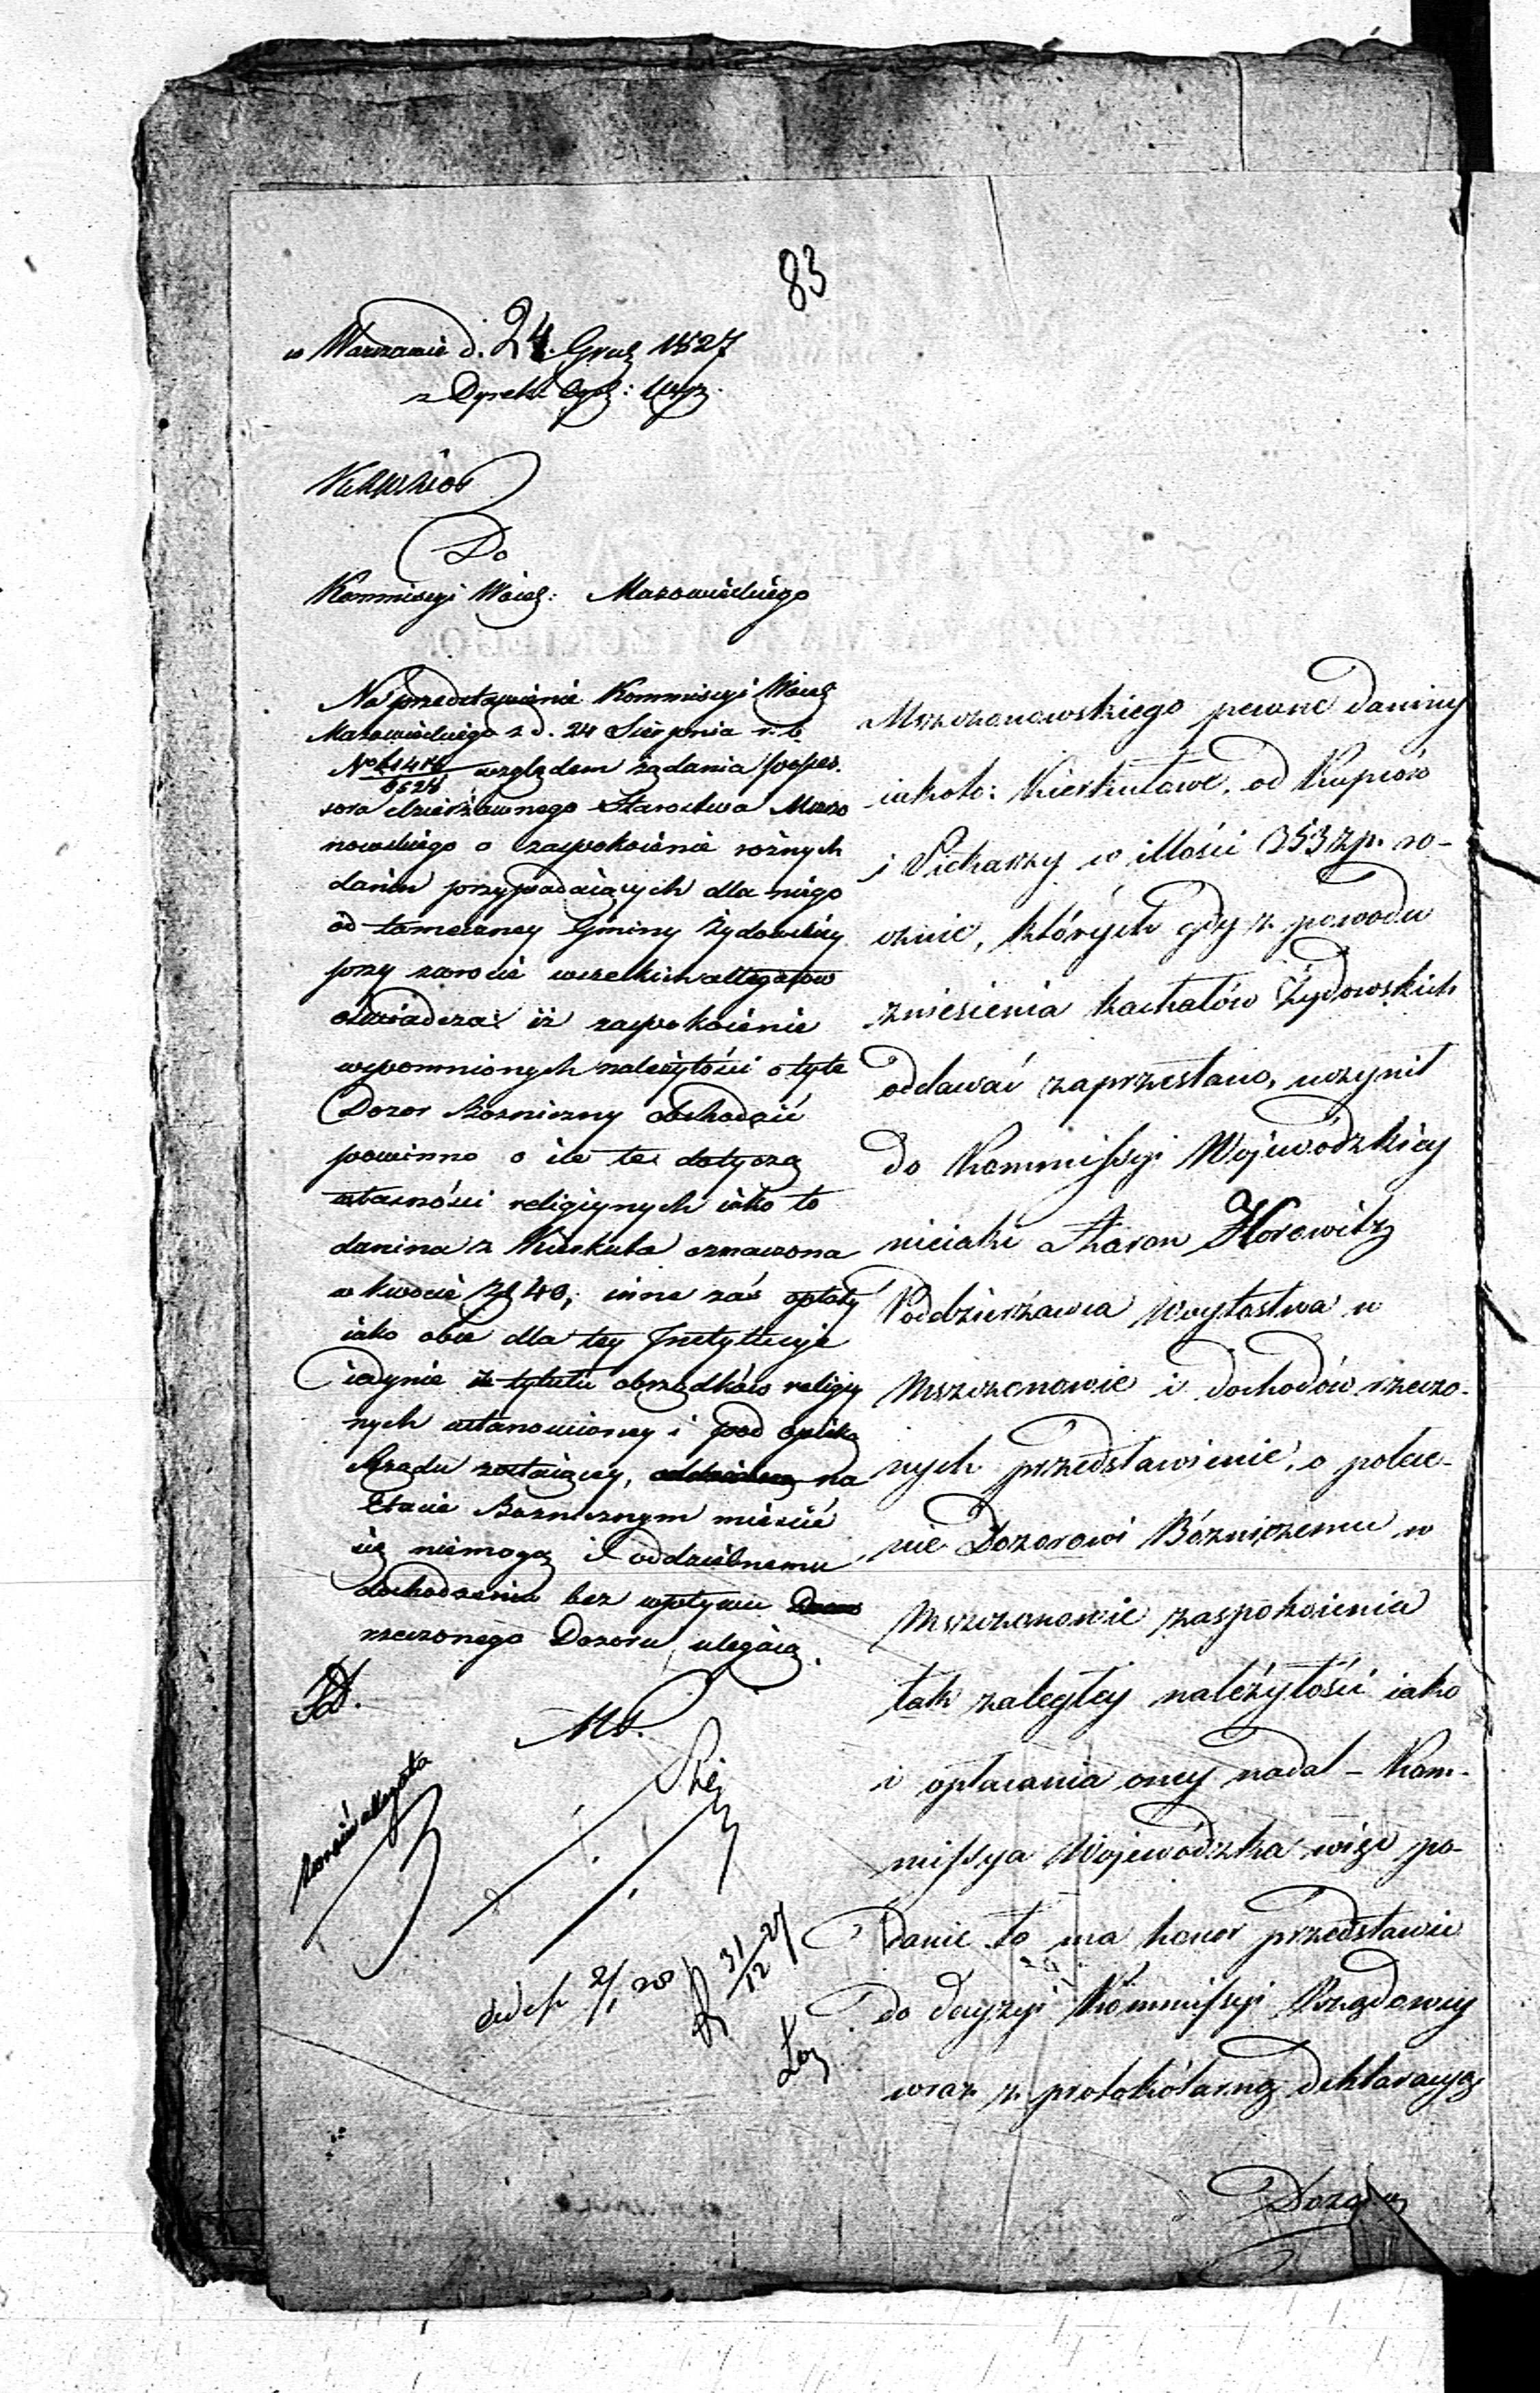 83
w Warszawie d. 24. Grud 1827
z Dyrek:
Do
Kommissyi Woiew: Mazowieckiego
Na przedstawienie Kommissyi Woiew
Mazowieckiego z d. 24 Sierpnia r. b.
No względem żądania posses-
sora dzierżawnego Starostwa Mszczo
nowskiego o zaspokoienie rożnych
danin przypadaiących dla niego
od tameczney Gminy Żydowskiey
przy zwrocie wszelkich allegatow
oświadcza: iż zaspokoienie
wspomnionych należytości o tyle
Dozor Bozniczny obchodzić
powinno o ile te dotyczą
własności religiynych iako to
danina z Kirkuta oznaczona
w kwocie Zł 40; inne zaś opłaty
iako obce dla tey Instytucyi
iedynie z tytułu obrządków religiy
nych ustanowioney i pod opieką
Rządu zostaiącey, na
Etacie Bozniznym mieścić
się niemogą i oddzielnemu
dochodzeniu bez wpływu
rzeczonego Dozoru, ulegaią.
zwrócić allegata
31/12 27
Mszczonowskiego pewne daniny
iakoto: Kierkutowe, od Kupców
i Piekarzy w illości 353 zp. ro-
cznie, których gdy z powodu
zniesienia kachałów Żydowskich
oddawać zaprzestano, uczynił
do Kommissyi Wojewódzkiey
nieiaki Aharon Horowitz
Poddzierżawca Wóytostwa w
Mszczonowie i dochodów rzeczo-
nych przedstawienie, o polece-
nie Dozorowi Bóżniczemu w
Mszczonowie zaspokoienia
tak zaległey należytości iako
i opłacania oney nadal – Kom-
missya Wojewódzka więc po-
danie to ma honor przedstawić
do decyzyi Kommissyi Rządowey
wraz z protokólarną deklaracyą
Dozoru